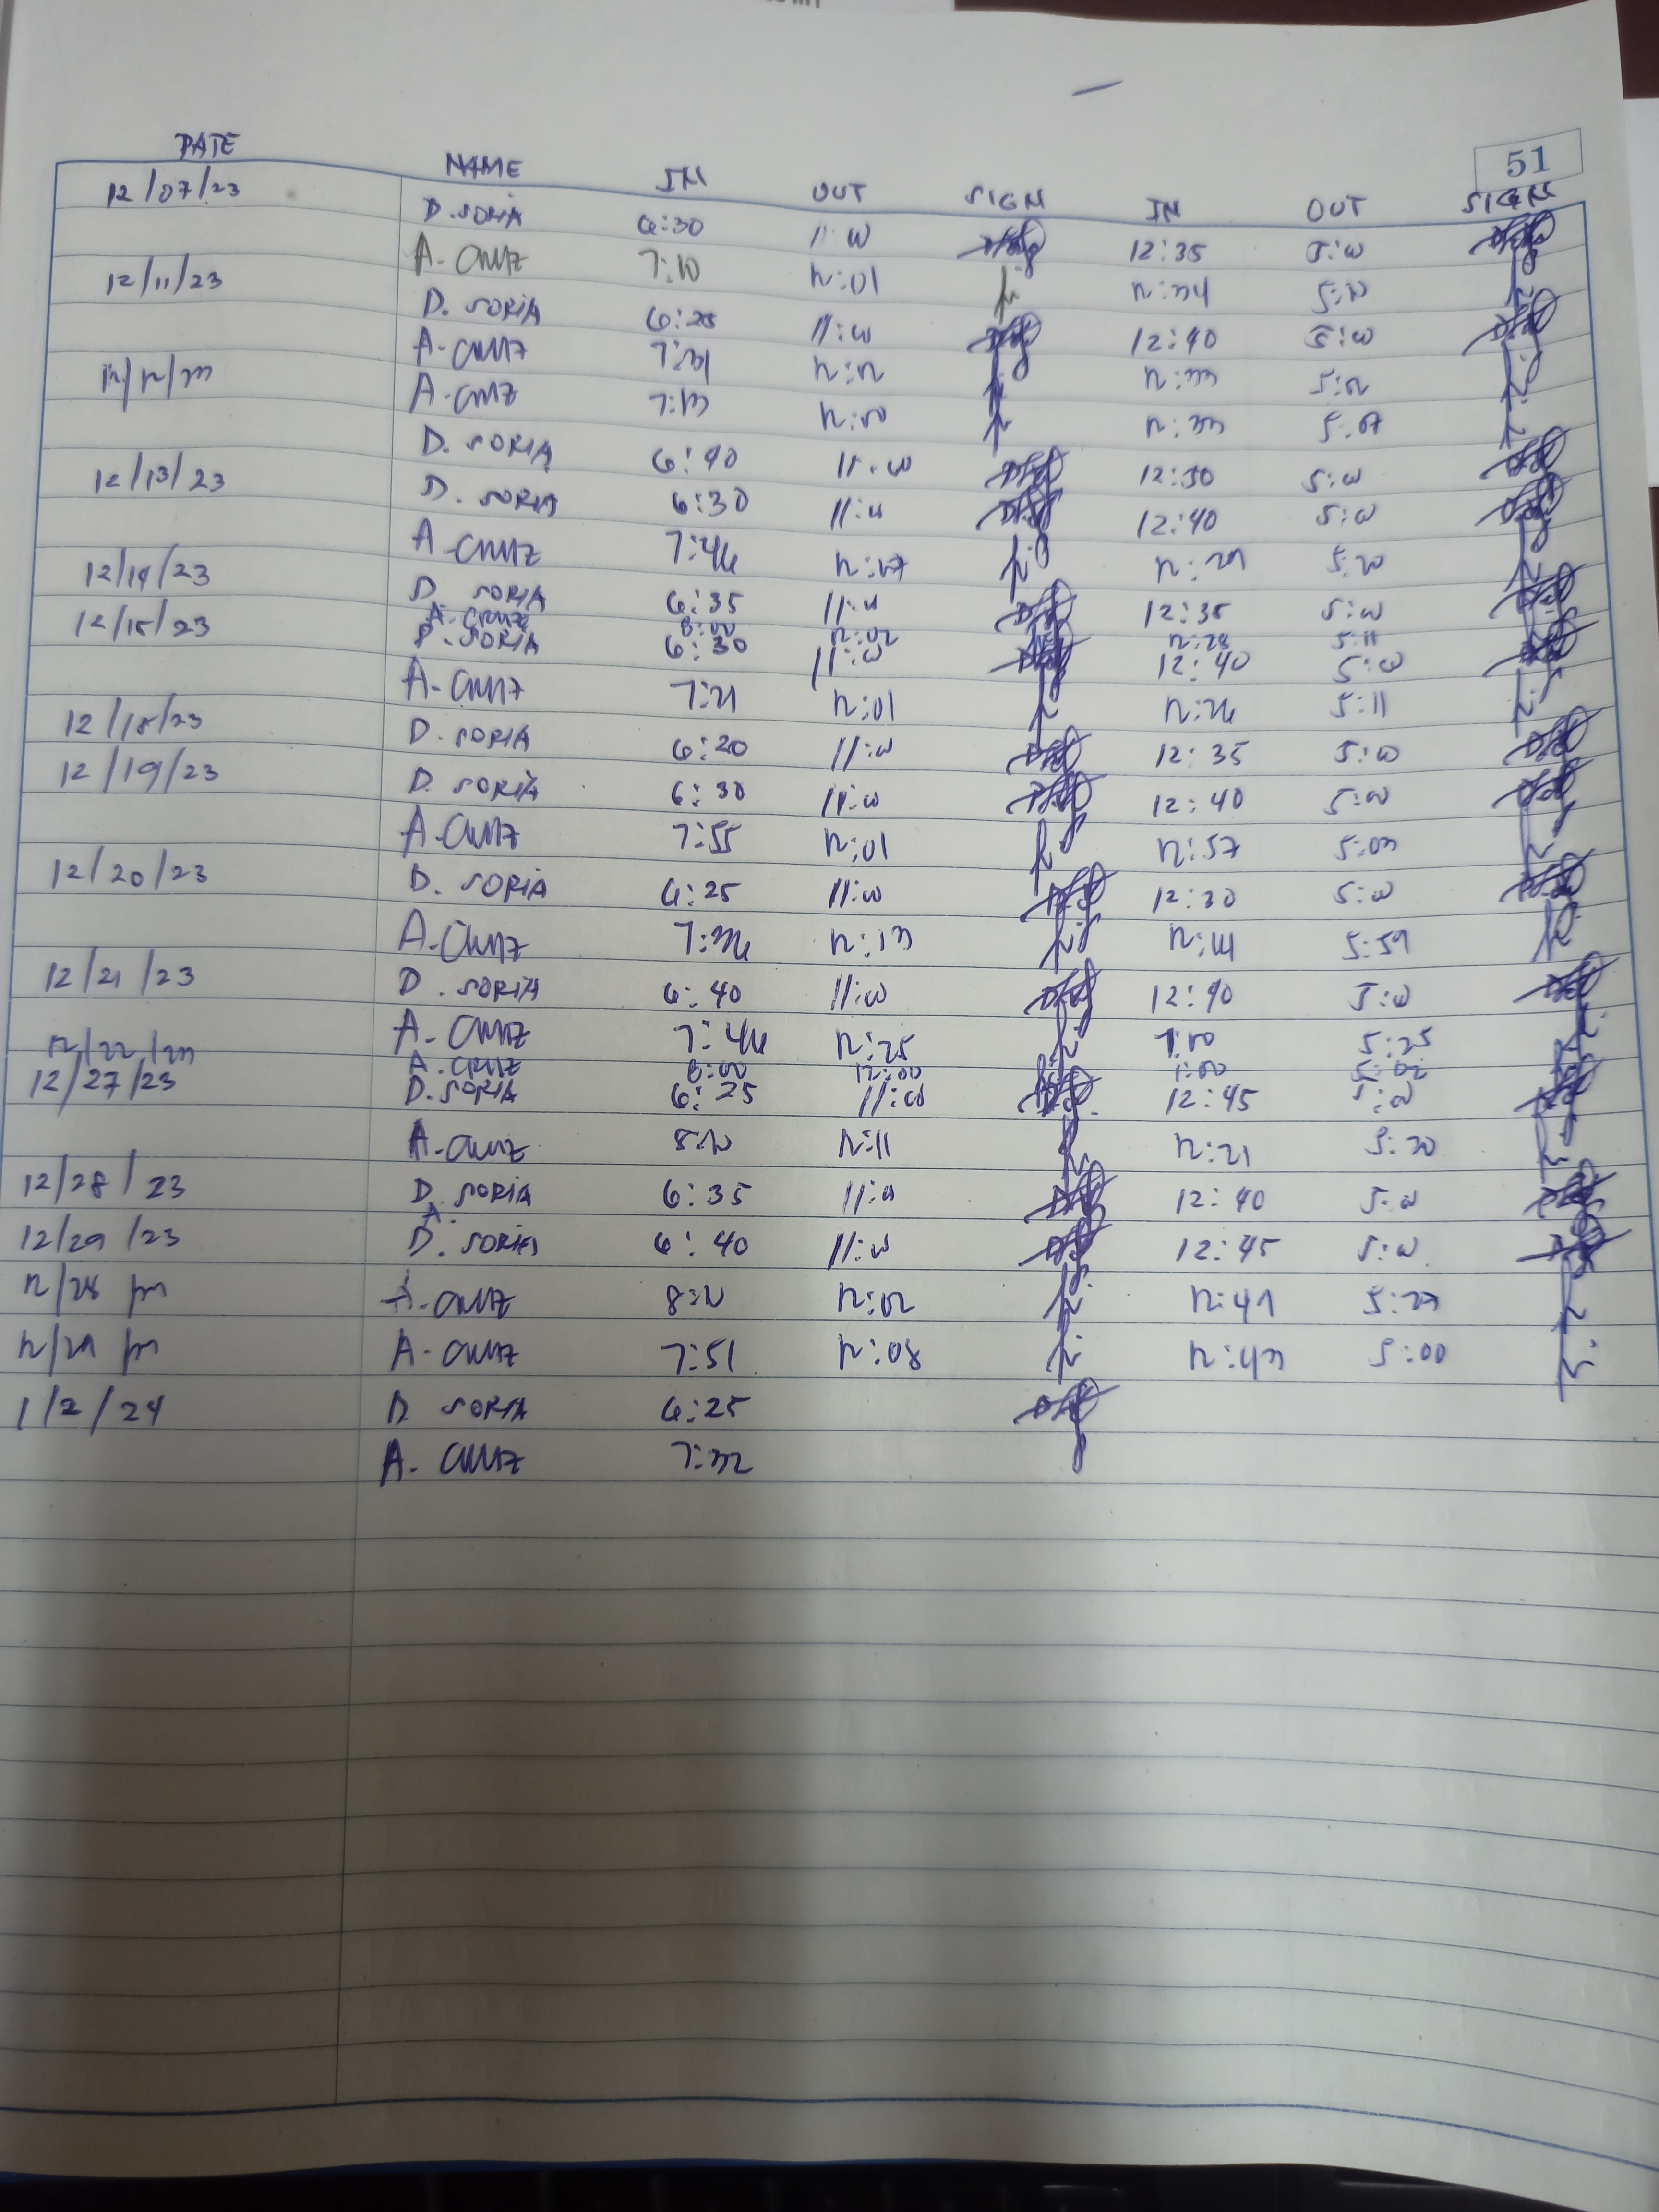 51
DATE NAME IN OUT SIGN IN OUT SIGN
12/07/23 D. SORIA 6:30 11:00 12:35 5:00
A. CRUZ 7:10 12:01 12:34
12/11/23 D. SORIA 6:25 11:00 12:40 5:00
A. CRUZ 7:31 12:02 12:33 5:02
12/12/23 A. CRUZ 7:13 12:00 12:33 5:07
D. SORIA 6:40 11:00 12:30 5:00
12/13/23 D. SORIA 6:30 11:00 12:40 5:00
A. CRUZ 7:46 12:07 12:29 5:20
12/14/23 D. SORIA 6:35 11:00 12:35 5:00
A. CRUZ 8:00 12:02 12:28 5:11
12/15/23 D. SORIA 6:30 11:00 12:40 5:00
A. CRUZ 7:21 12:01 12:26 5:11
12/18/23 D. SORIA 6:20 11:00 12:35 5:00
12/19/23 D. SORIA 6:30 11:00 12:40 5:00
A. CRUZ 7:55 12:01 12:57 5:03
12/20/23 D. SORIA 6:25 11:00 12:30 5:00
A. CRUZ 7:36 12:13 5:59
12/21/23 D. SORIA 6:40 11:00 12:40 5:00
A. CRUZ 7:46 12:25 1:00 5:25
12/22/23 A. CRUZ 8:00 12:00 1:00 5:02
12/27/23 D. SORIA 6:25 11:00 12:45 5:00
A. CRUZ 12:11 12:21 5:20
12/28/23 D. SORIA 6:35 11:00 12:40 5:00
A.
12/29/23 D. SORIA 6:40 11:00 12:45 5:00
12/28 23 A. CRUZ 12:02 12:41 5:27
12/29 23 A. CRUZ 7:51 12:08 12:43 5:00
1/2/24 D. SORIA 6:25
A. CRUZ 7:32